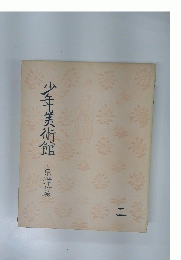 少年美術館
二